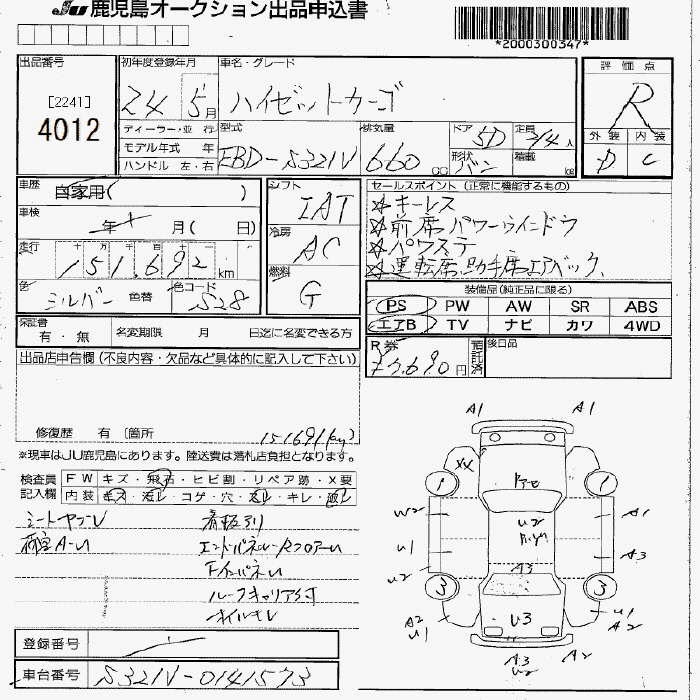 JU 鹿児島オークション出品申込書
*2000300347*
出品番号
[2241]
4012
初年度登録年月
24 5月
車名・グレード
ハイゼットカーゴ
評価点
R
外装 内装
D C
ディーラー・並行
モデル年式 年
ハンドル 左・右
型式
EBD-S321V
排気量
660 CC
ドア
5D
定員
2/4人
形状
バン
積載
kg
車歴
自家用( )
車検
年 月( 日)
走行
十万千百十
151,692 km
色
シルバー 色替
色コード
S28
シフト
IAT
冷房
AC
燃料
G
セールスポイント(正常に機能するもの)
☆キーレス
☆前席パワーウインドウ
☆パワステ
☆運転席、助手席エアバック、
装備品(純正品に限る)
PS PW AW SR ABS
エアB TV ナビ カワ 4WD
保証書
有・無
名変期限 月 日迄に名変できる方
R券
預託済
円
後日品
出品店申告欄(不良内容・欠品など具体的に記入して下さい)
修復歴 有〔箇所
151691(km)
※現車はJU鹿児島にあります。陸送費は落札店負担となります。
検査員
記入欄
FW キズ・飛石・ヒビ割・リペア跡・X要
内装
シートヤブレ 看板アリ
荷室A-U エンドパネル・RフロアーU
FインパネU
ルーフキャリア付
オイルモレ
A1 A1
XX
1 1
W2 U2 A1
U1 A3
U2 A3
3 3
A2 U3 U1
U1 A2
A3 A2
U2
登録番号
車台番号 S321V-0141573